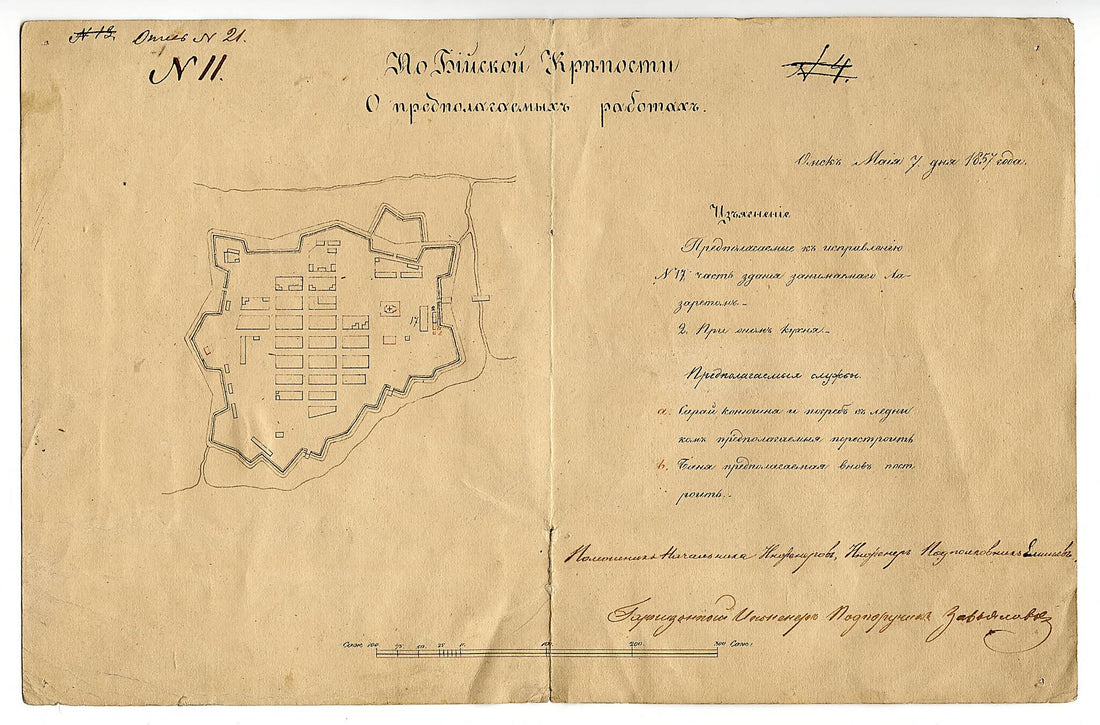 № 13. Опись № 21.
№ 11.
№ 4.
По Бійской Крѣпости
О предполагаемыхъ работахъ.
Омскъ Маія 7. дня 1857 года.
Изъясненіе
Предполагаемые къ исправленію
№ 17, часть зданія занимаемаго Ла-
заретомъ.-
2. При ономъ кухня.-
Предполагаемыя службы.
а. Сарай конюшна и погребъ съ ледни
комъ предполагаемыя перестроить
b. Баня предполагаемая вновь пост
роить.-
17
2
Помошникъ Начальника Инженеровъ, Инженеръ Подполковникъ
Гарнизонный Инженеръ Подпоручикъ Завьяловъ
Саж: 100 75 50 25 100 200 300 Саж: